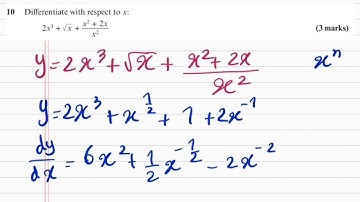 10 Differentiate with respect to x:
2x³ + √x + (x² + 2x)/x²
(3 marks)
y = 2x³ + √x + (x² + 2x)/x² xⁿ
y = 2x³ + x^(1/2) + 1 + 2x⁻¹
dy/dx = 6x² + 1/2 x^(-1/2) - 2x⁻²